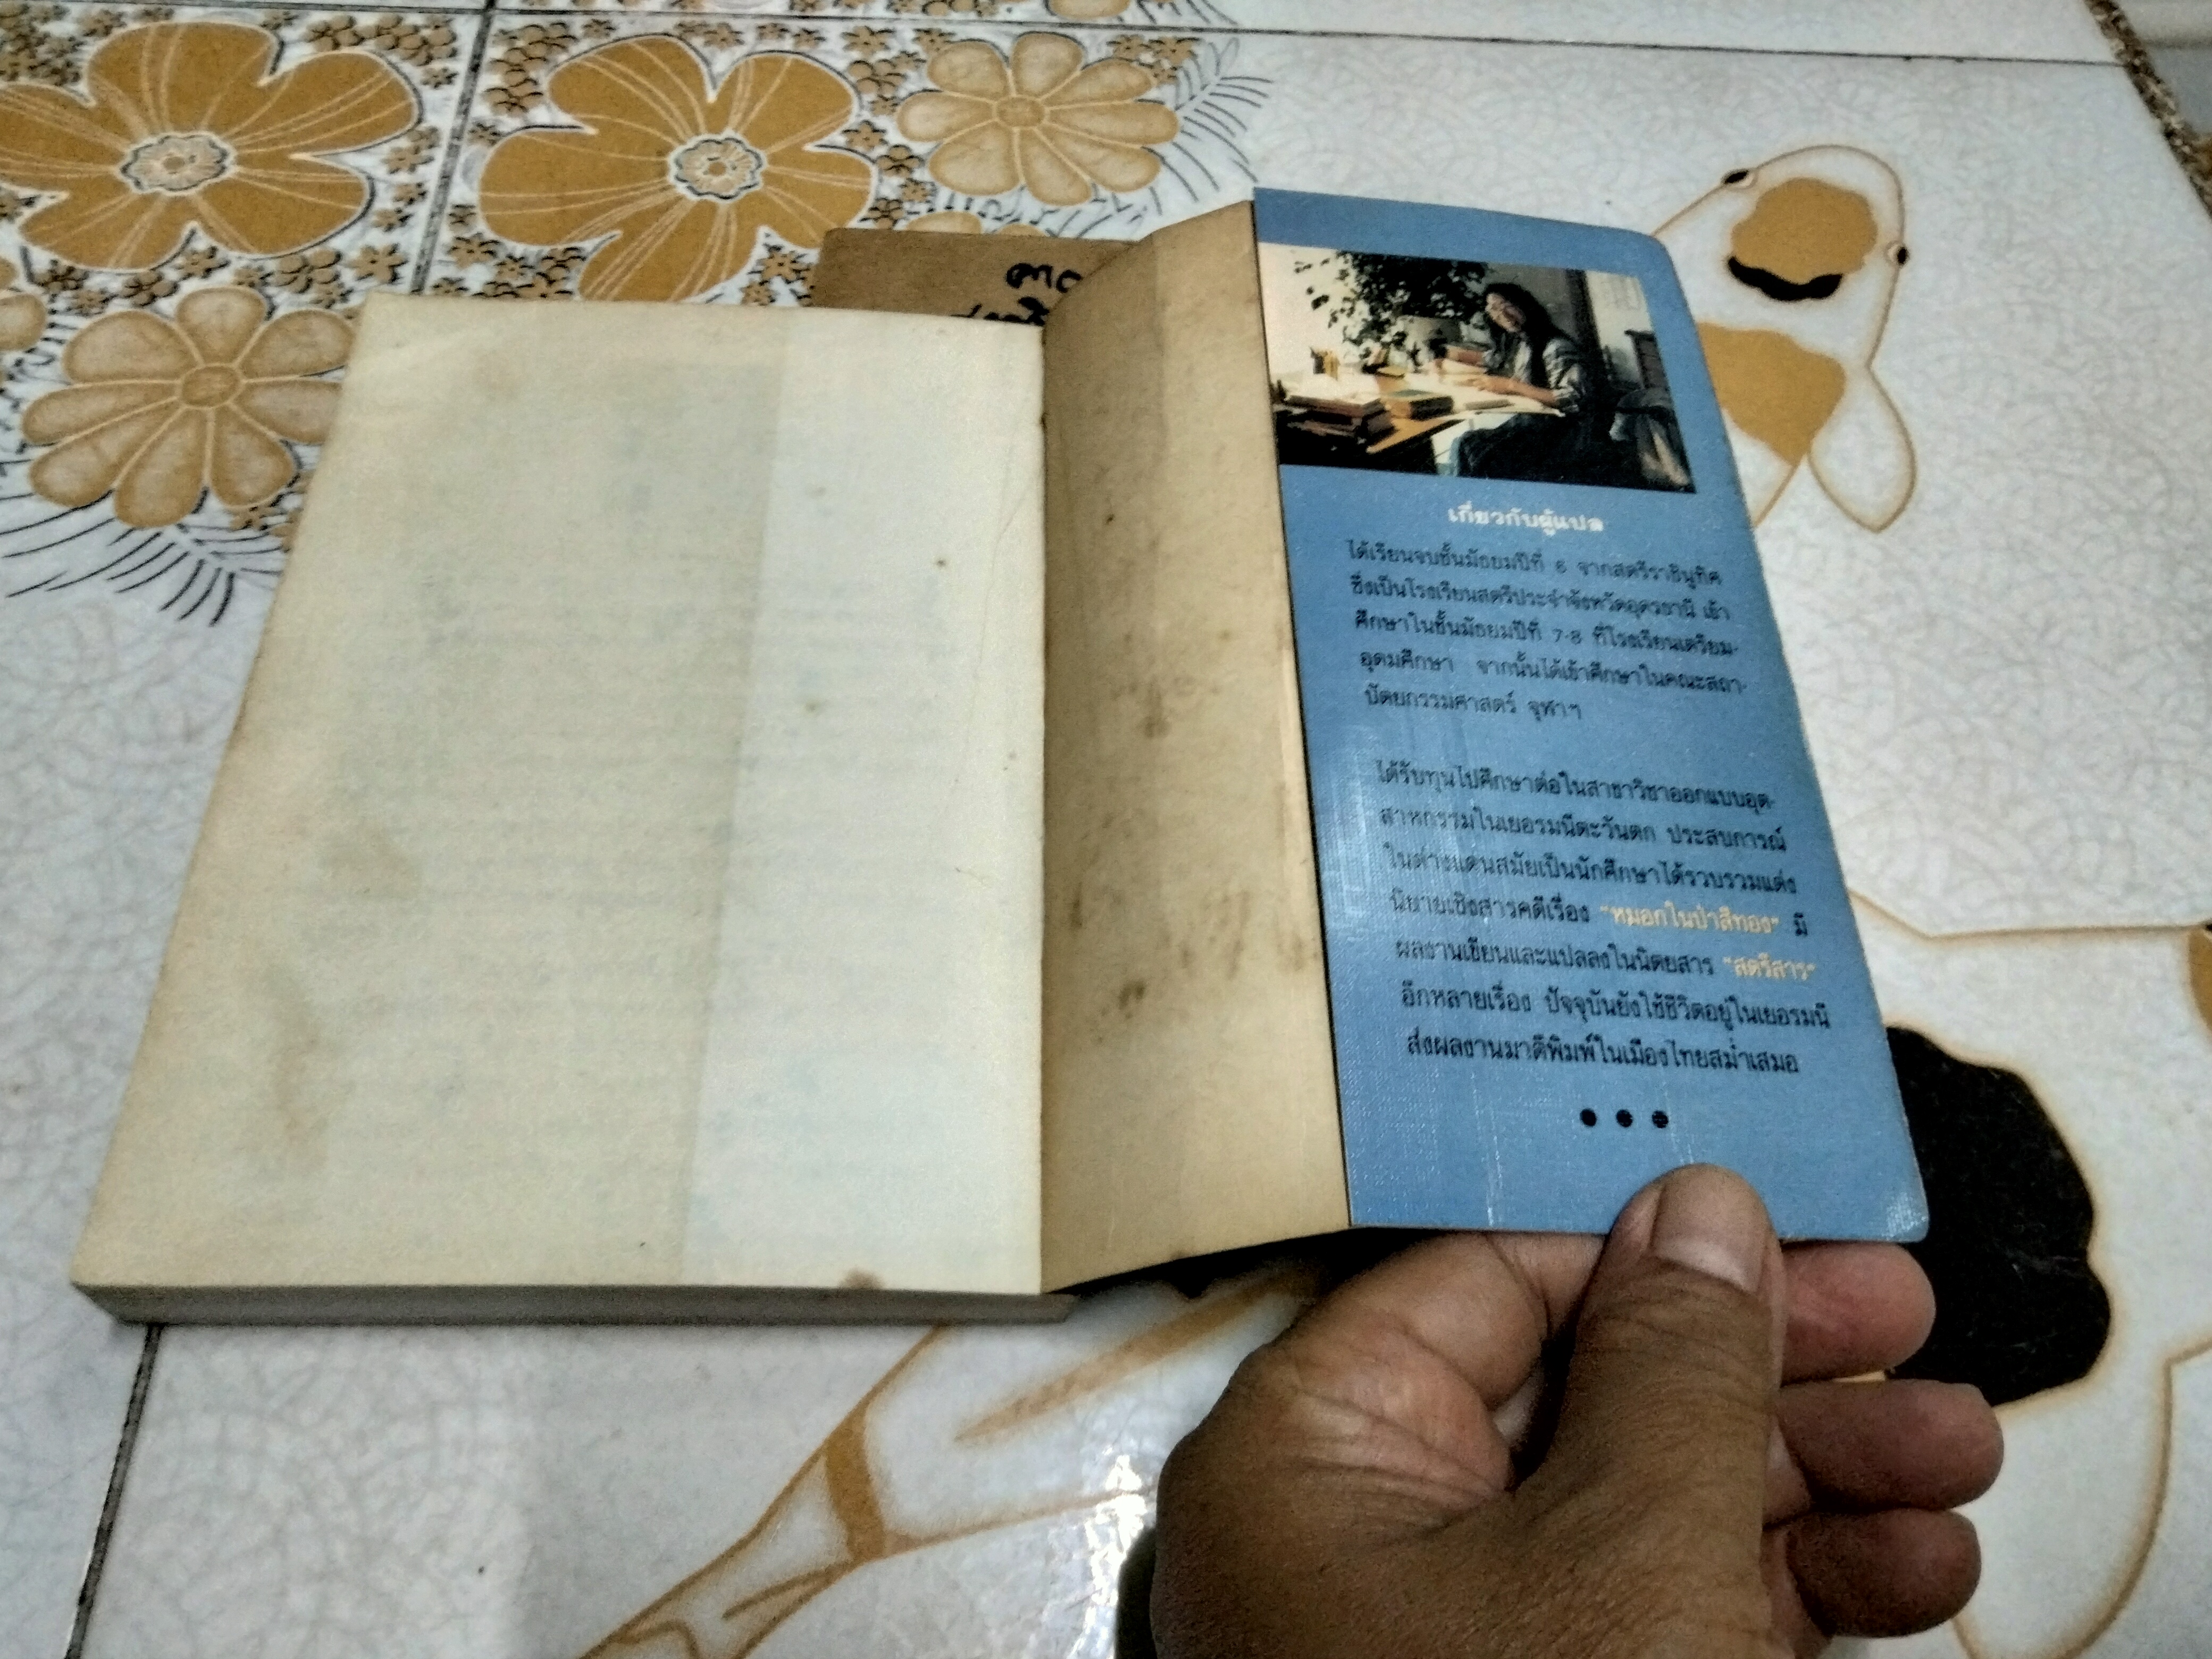 เกี่ยวกับผู้แปล
ได้เรียนจบชั้นมัธยมปีที่ 6 จากสตรีราชินูทิศ
ซึ่งเป็นโรงเรียนสตรีประจำจังหวัดอุดรธานี เข้า
ศึกษาในชั้นมัธยมปีที่ 7-8 ที่โรงเรียนเตรียม-
อุดมศึกษา จากนั้นได้เข้าศึกษาในคณะสถา-
ปัตยกรรมศาสตร์ จุฬาฯ
ได้รับทุนไปศึกษาต่อในสาขาวิชาออกแบบอุต-
สาหกรรมในเยอรมนีตะวันตก ประสบการณ์
ในต่างแดนสมัยเป็นนักศึกษาได้รวบรวมแต่ง
นิยายเชิงสารคดีเรื่อง "หมอกในป่าสีทอง" มี
ผลงานเขียนและแปลลงในนิตยสาร "สตรีสาร"
อีกหลายเรื่อง ปัจจุบันยังใช้ชีวิตอยู่ในเยอรมนี
ส่งผลงานมาตีพิมพ์ในเมืองไทยสม่ำเสมอ